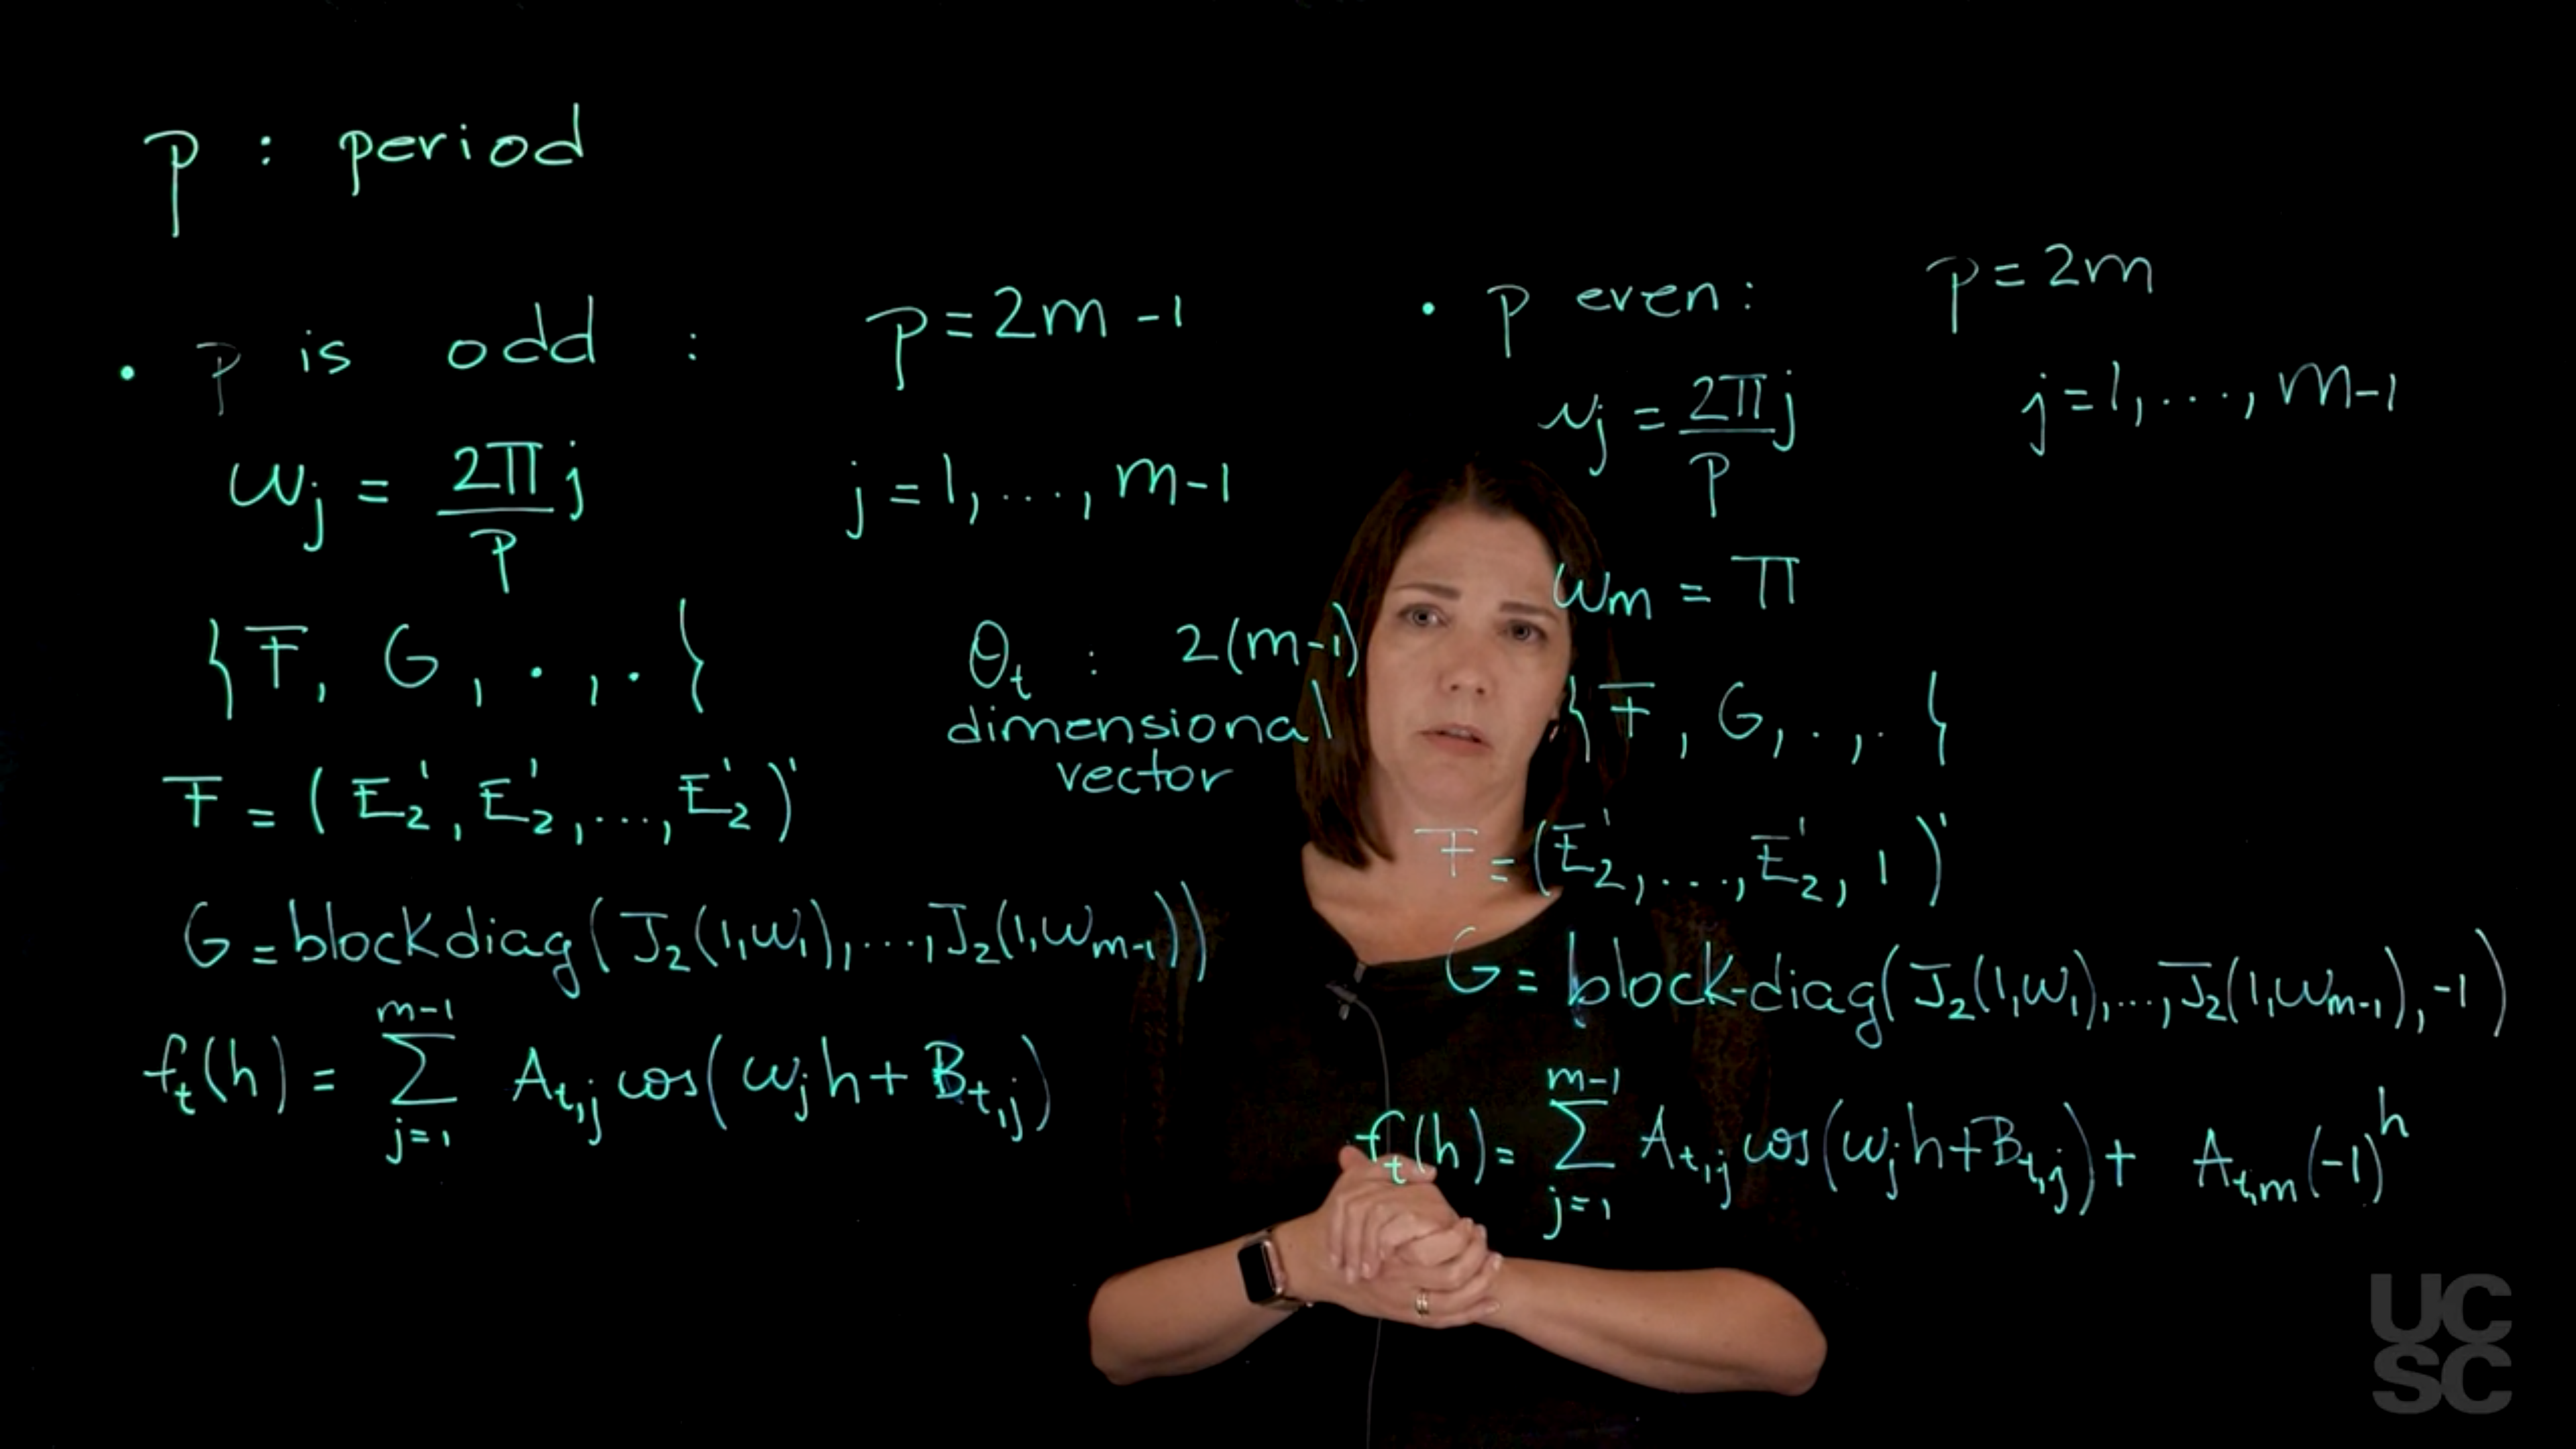 p : period
• p is odd : p = 2m - 1
ωj = 2π/p j j = 1, ..., m-1
{F, G, ·, ·} θt : 2(m-1)
dimensional
vector
F = (E2', E2', ..., E2')'
G = blockdiag(J2(1,ω1), ..., J2(1,ωm-1))
ft(h) = Σ_{j=1}^{m-1} At,j cos(ωjh + Bt,j)
• p even : p = 2m
ωj = 2π/p j j = 1, ..., m-1
ωm = π
{F, G, ·, ·}
F = (E2', ..., E2', 1)'
G = block-diag(J2(1,ω1), ..., J2(1,ωm-1), -1)
ft(h) = Σ_{j=1}^{m-1} At,j cos(ωjh + Bt,j) + At,m(-1)^h
UC
SC